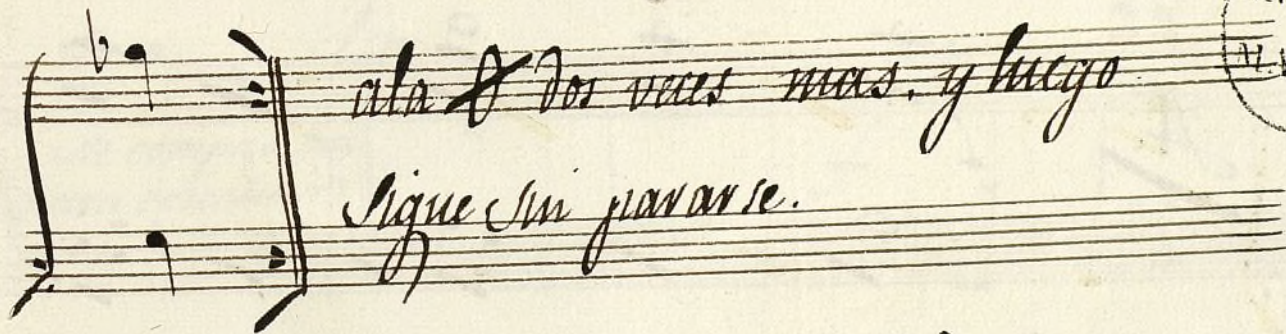 ala 𝄋 dos veces mas. y luego
sigue sin pararse.